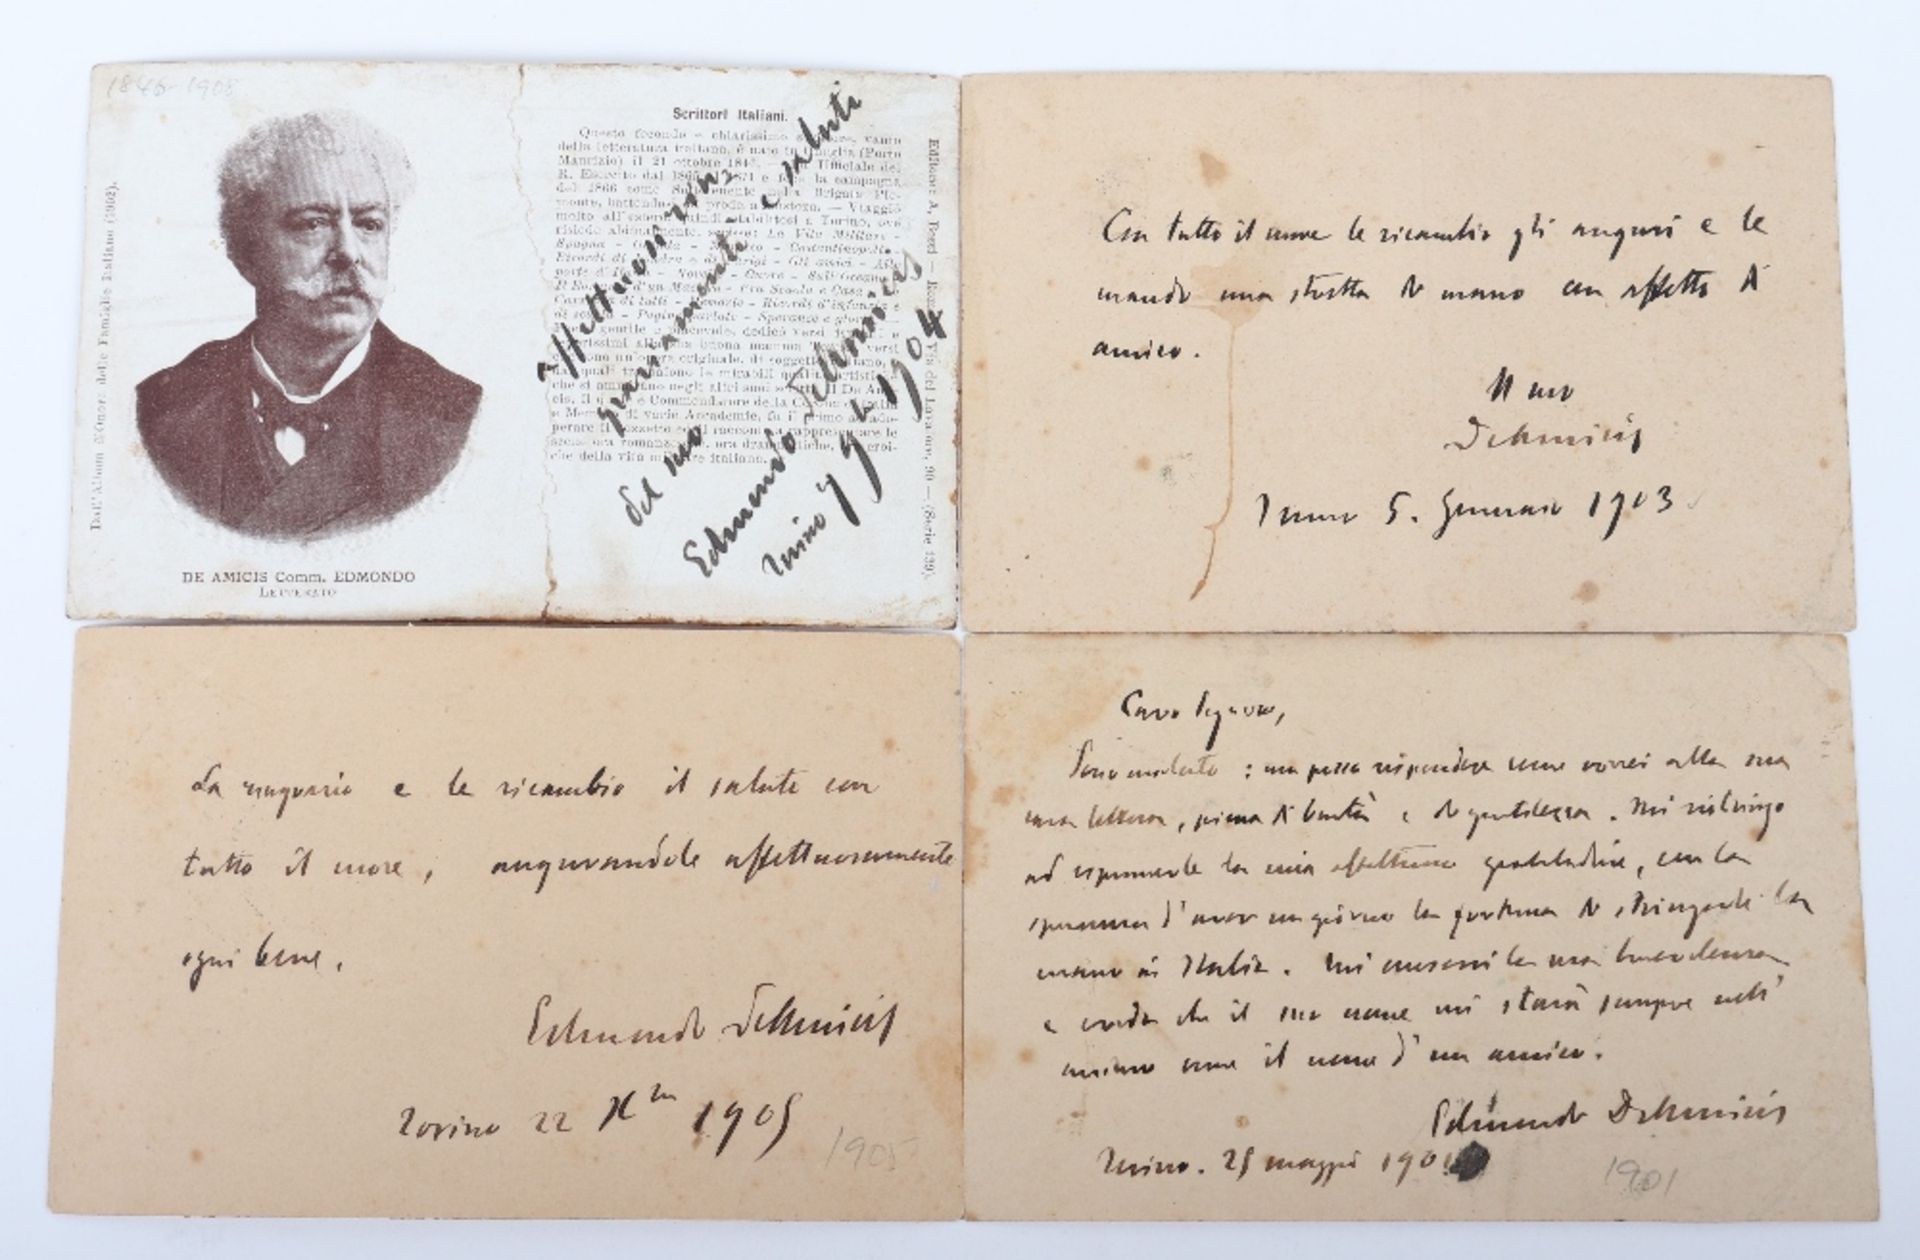 1846-1908
Dall'Album d'Onore delle Famiglie Italiane (1902).
DE AMICIS Comm. EDMONDO
LETTERATO
Scrittori Italiani.
Questo fecondo e chiarissimo vanto
della letteratura italiana, è nato in (Porto
Maurizio) il 21 ottobre 1846. Ufficiale del
R. Esercito dal 1871 e la campagna
del 1866 come nella Brigata Pie-
monte, battendosi da prode a Custoza. — Viaggiò
molto all'estero, quindi stabilitosi a Torino, ove
risiede abitualmente, scrisse: La Vita Militare -
Spagna - - - Costantinopoli -
Ricordi di Londra e di Parigi - Gli amici - Alle
porte d'Italia - - Cuore - Sull'Oceano -
Il d'un Maestro - Fra Scuola e Casa - La
Carrozza di tutti - Memorie - Ricordi d'infanzia e
di scuola - Pagine sparse - Speranze e glorie -
gentile e piacevole, dedicò versi
alla sua buona mamma versi
un'opera originale, di soggetto
quali le mirabili qualità
che si ammirano negli altri suoi Il De Ami-
cis, il è Commendatore della Corona d'Italia
e Membro di varie Accademie, fu il primo ad ado-
perare il bozzetto ed il racconto a rappresentare le
scene ora ora drammatiche,
che della vita militare italiana.
Editore A, — Via del Lavatore, 90 — (Serie
Affettuosi e saluti
del suo
Edmondo DeAmicis
Torino 1904
Con tutto il cuore le ricambio gli auguri e le
mando una stretta di mano con affetto di
amico.
Il suo
DeAmicis
Torino 5. Gennaio 1903
La ringrazio e le ricambio il saluto con
tutto il cuore, augurandole affettuosamente
ogni bene.
Edmondo DeAmicis
Torino 22 Xbre 1905
1905
Caro Signore,
Sono malato: non posso rispondere come vorrei alla sua
cara lettera, piena di bontà e di gentilezza. Mi restringo
ad esprimerle la mia affettuosa gratitudine, con la
speranza d'aver un giorno la fortuna di stringerle la
mano in Italia. Mi conservi la sua benevolenza
e creda che il suo nome mi starà sempre nell'
animo come il nome d'un amico.
Edmondo DeAmicis
Torino. 25 maggio 1901
1901